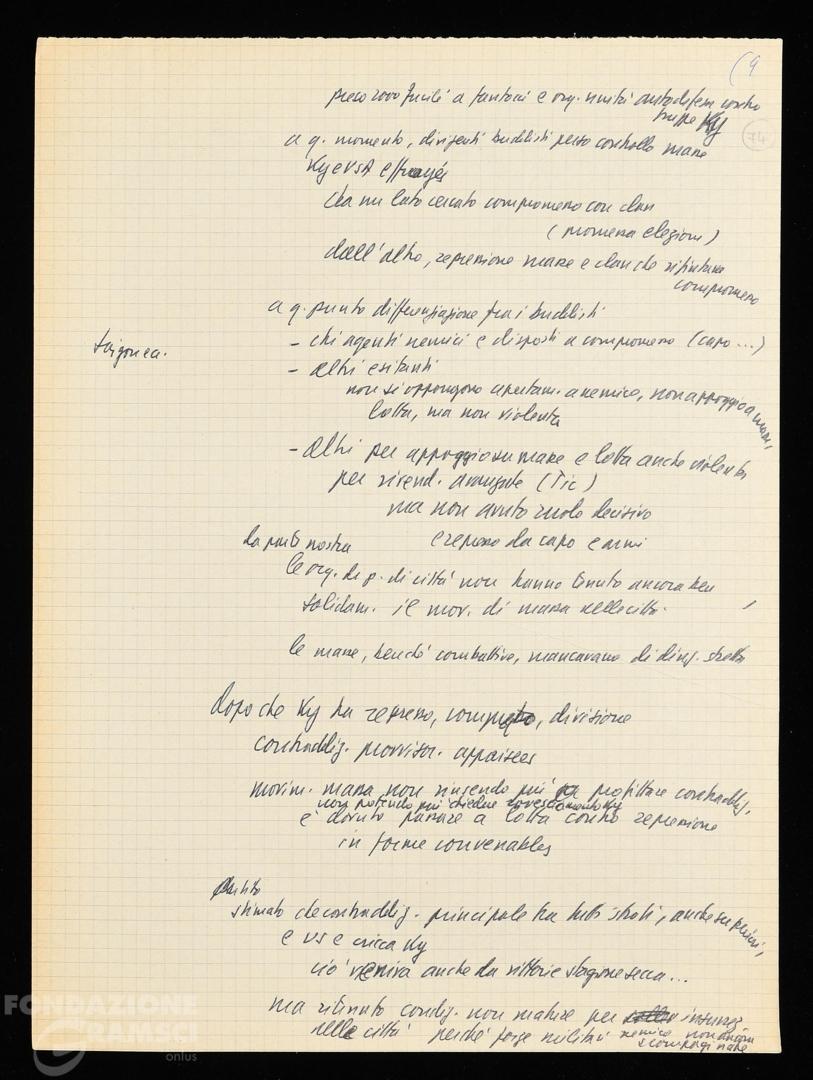 (9
74
preso 2000 fucili a fantocci e org. unità autodifesa contro
truppe Ky
a q. momento, dirigenti buddisti perso controllo masse
Ky e USA effrayés
da un lato cercato compromesso con clan
(promessa elezioni)
dall'altro, repressione masse e clan che rifiutava
compromesso
a q. punto differenziazione fra i buddisti
- chi agenti nemici e disposti a compromesso (capo ...)
- altri esitanti
non si oppongono apertam. a nemico, non appoggio a masse,
lotta, ma non violenta
- altri per appoggio su masse e lotta anche violenta
per rivend. avanzate (Tic)
ma non avuto ruolo decisivo
e represso da capo e armi
da parte nostra
le org. di p. di città non hanno tenuto ancora ben
solidam. il mov. di massa nelle città.
le masse, benché combattive, mancavano di direz. stretta
dopo che Ky ha represso, , divisione
contraddiz. provvisor. appaisées
movim. massa non riuscendo più a profittare contraddiz.
non potendo più chiedere rovesciamento Ky
è dovuto passare a lotta contro repressione
in forme convenables
partito
stimato che contraddiz. principale tra tutti strati, anche superiori,
e US e cricca Ky
ciò veniva anche da vittorie stagione secca...
ma ritenuto condiz. non mature per insurrez
nelle città perché forze militari nemico non ancora
FONDAZIONE
GRAMSCI
onlus